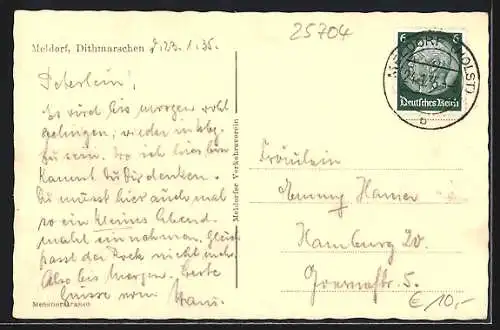 25704
Meldorf, Dithmarschen d. 23.1.35.
Peterlein!
Es wird bis morgen wohl
gelingen, wieder in Hbg.
zu sein. Wo ich hier bin
kannst Du Dir denken.
Du musst hier auch mal
so ein kleines Abend
mahl einnehmen.
passt der Rock nicht mehr.
Also bis Morgen. Beste
Grüsse von Hans.
Meldorfer Verkehrsverein
MELDORF (HOLST)
b
6 6
Deutsches Reich
Fräulein
Hamburg 20.
5.
€ 10,-